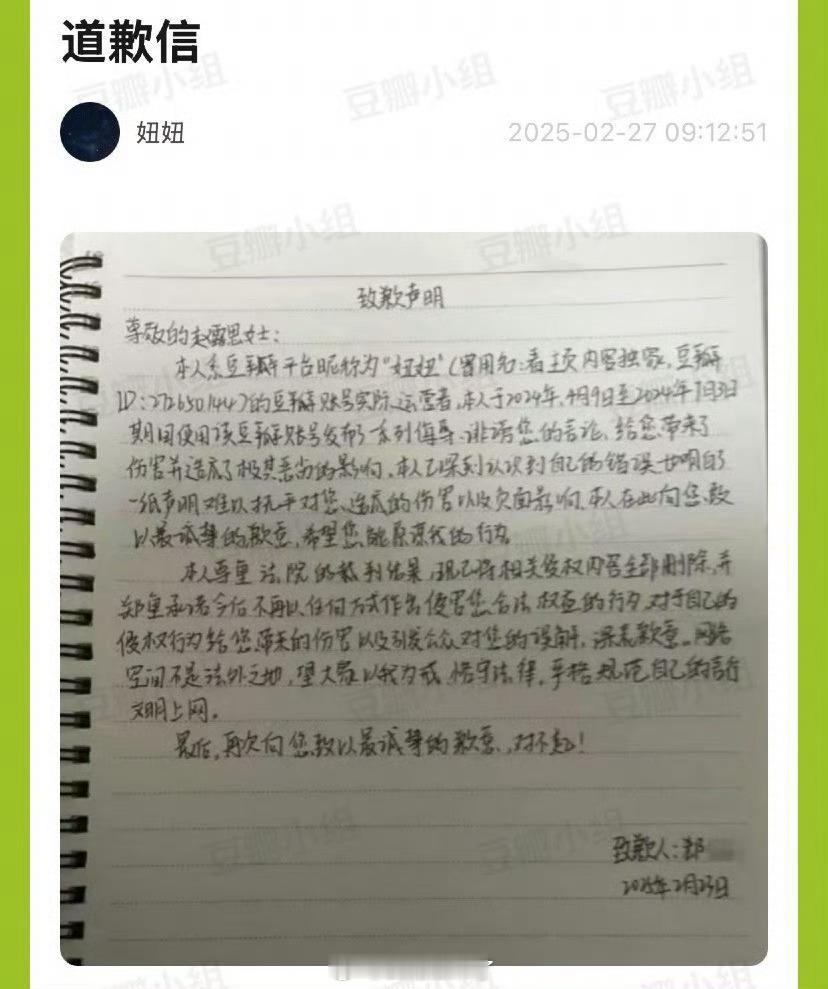 道歉信
妞妞
2025-02-27 09:12:51
致歉声明
尊敬的赵露思女士：
本人系豆瓣平台昵称为“妞妞”（曾用名：看主页内容独家，豆瓣
ID：272650144）的豆瓣账号实际运营者，本人于2024年4月9日至2024年7月3日
期间使用该豆瓣账号发布了系列侮辱、诽谤您的言论，给您带来了
伤害并造成了极其恶劣的影响。本人已深刻认识到自己的错误，也明白了
一纸声明难以抚平对您造成的伤害以及负面影响，本人在此向您致
以最诚挚的歉意，希望您能原谅我的行为
本人尊重法院的裁判结果，现已将相关侵权内容全部删除，并
郑重承诺今后不再以任何方式作出侵害您合法权益的行为，对于自己的
侵权行为给您带来的伤害以及引发公众对您的误解，深表歉意。网络
空间不是法外之地，望大家以我为戒，恪守法律，严格规范自己的言行
文明上网。
最后，再次向您致以最诚挚的歉意，对不起！
致歉人：郑
2025年2月23日
豆瓣小组